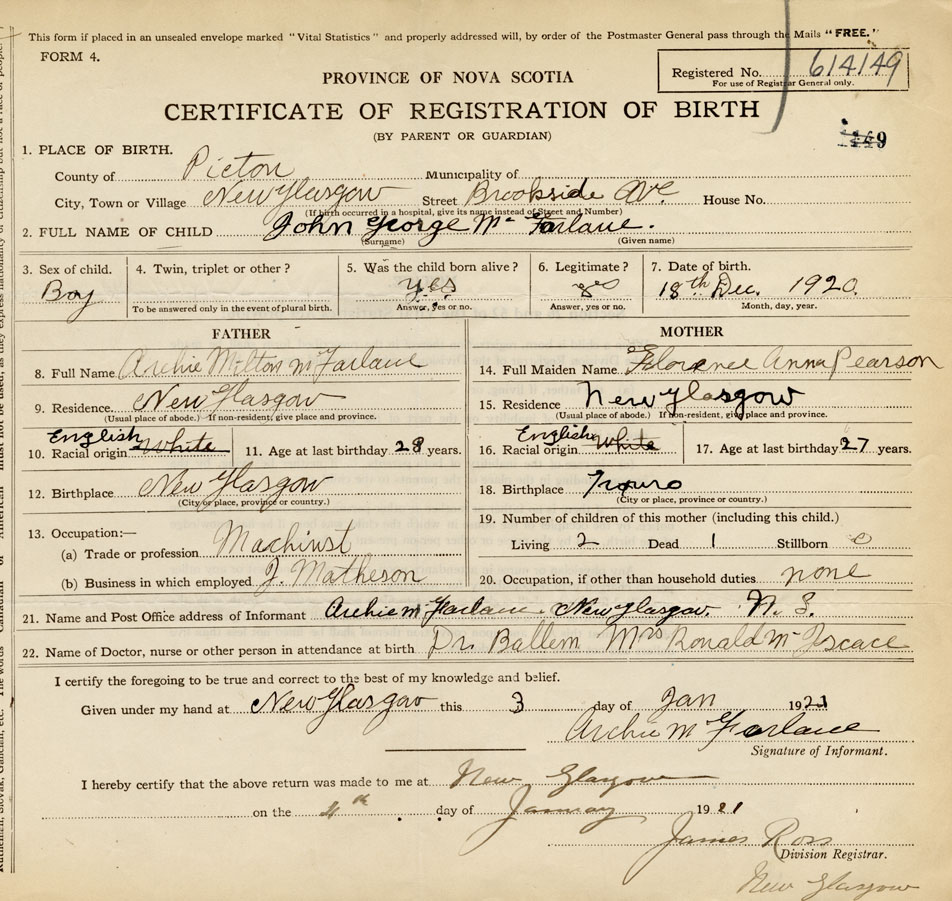 This form if placed in an unsealed envelope marked "Vital Statistics" and properly addressed will, by order of the Postmaster General pass through the Mails "FREE."
FORM 4.
Registered No. 614149
For use of Registrar General only.
PROVINCE OF NOVA SCOTIA
CERTIFICATE OF REGISTRATION OF BIRTH
(BY PARENT OR GUARDIAN)
149
1. PLACE OF BIRTH.
County of Picton Municipality of
City, Town or Village New Glasgow Street Brookside Ave House No.
(If birth occurred in a hospital, give its name instead of Street and Number)
2. FULL NAME OF CHILD John George Mc Farlane.
(Surname) (Given name)
3. Sex of child. 4. Twin, triplet or other? 5. Was the child born alive? 6. Legitimate? 7. Date of birth.
Boy yes yes 18th Dec. 1920.
To be answered only in the event of plural birth. Answer, yes or no. Answer, yes or no. Month, day, year.
FATHER
8. Full Name Archie Milton McFarlane
9. Residence New Glasgow
(Usual place of abode.) If non-resident, give place and province.
English
10. Racial origin White 11. Age at last birthday 28 years.
12. Birthplace New Glasgow
(City or place, province or country.)
13. Occupation:—
(a) Trade or profession Machinst
(b) Business in which employed J. Matheson
MOTHER
14. Full Maiden Name Florence Anna Pearson
15. Residence New Glasgow
(Usual place of abode.) If non-resident, give place and province.
English
16. Racial origin White 17. Age at last birthday 27 years.
18. Birthplace Truro
(City or place, province or country.)
19. Number of children of this mother (including this child.)
Living 2 Dead 1 Stillborn o
20. Occupation, if other than household duties. none
21. Name and Post Office address of Informant Archie McFarlane. New Glasgow. N. S.
22. Name of Doctor, nurse or other person in attendance at birth Dr. Ballem Mrs Ronald Mc
I certify the foregoing to be true and correct to the best of my knowledge and belief.
Given under my hand at New Glasgow this 3 day of Jan 1921
Archie McFarlane
Signature of Informant.
I hereby certify that the above return was made to me at New Glasgow
on the 4th day of January 1921
James Ross
Division Registrar.
New Glasgow